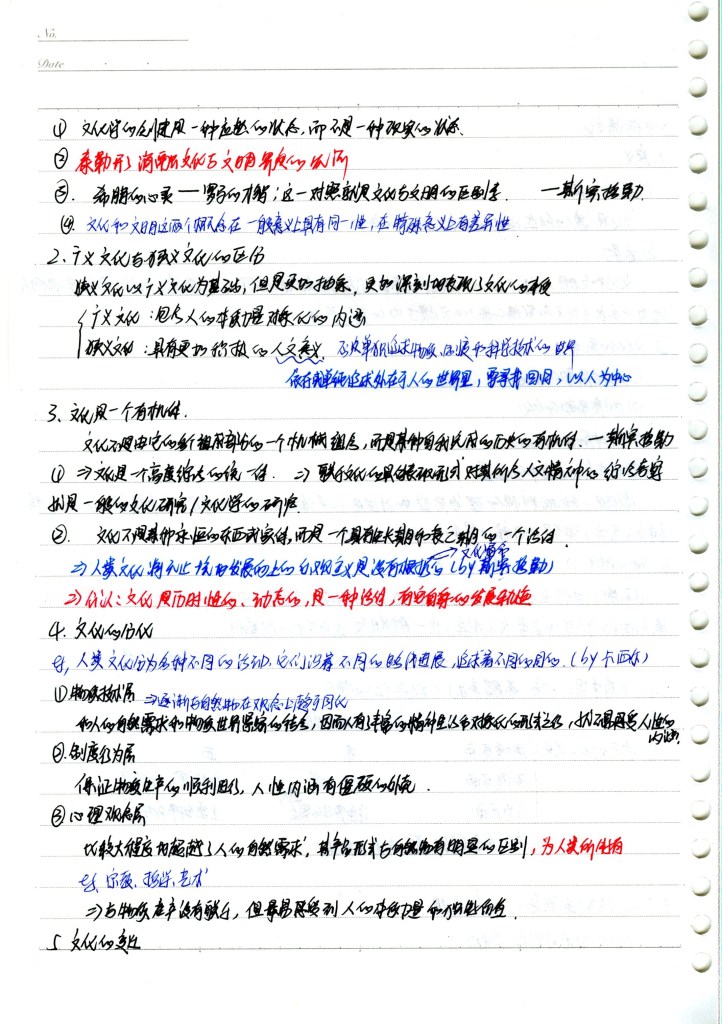 No.
Date
① 文化学的创建是一种应然的状态,而不是一种现实的状态.
② 泰勒开了消弭文化与文明界定的先河
③. 希腊的心灵——罗马的才智;这一对照就是文化与文明的区别. ——斯宾格勒.
④. 文化和文明这两个概念在一般意义上具有同一性,在特殊意义上有差异性
2. 广义文化与狭义文化的区分
狭义文化以广义文化为基础,但是更加抽象,更加深刻地表现了文化的本质
广义文化:包含人的本质力量对象化的内涵
狭义文化:具有更加的人文意义,不决单纯追求物质和科学技术的世界
依存单纯追求外在于人的世界里,要寻求回归,以人为中心
3. 文化是一个有机体.
文化不是由它的各个组成部分的一个机械组合,而是某种自我完成的历史的有机体.——斯宾格勒
① ⇒文化是一个高度综合的统一体. ⇒联于文化的具体表现形式对其所含人文精神的综合考察
就是一般的文化研究/文化学的研究
②. 文化不是某种永恒的东西或实体,而是一个具有生长期和衰亡期的一个活体.
→文化宿命
⇒人类文化将无止境地发展向上的乐观主义是没有根据的(by斯宾格勒)
⇒何认:文化是历时性的、动态的,是一种活体,有它自身的发展轨迹
4. 文化的分化
eg, 人类文化分为各种不同的活动,它们沿着不同的路径进展,追求着不同的目的.(by卡西尔)
①物质技术层 ⇒逐渐与自然物在观念上趋于同化
和人的自然需求和物质世界紧密的结合,因而人有丰富的精神生活和对象化的形式之后,就不再感受人性的
内涵.
②.制度行为层
保证物质生产的顺利进行,人性内涵有僵硬的外壳.
③心理观念层
比较大程度地超越了人的自然需求,其存在形式与自然物有明显的区别,为人类所独有
eg, 宗教、哲学、艺术
⇒与物质生产没有联系,但最易感受到人的本质力量和价值的自觉.
5. 文化的变迁